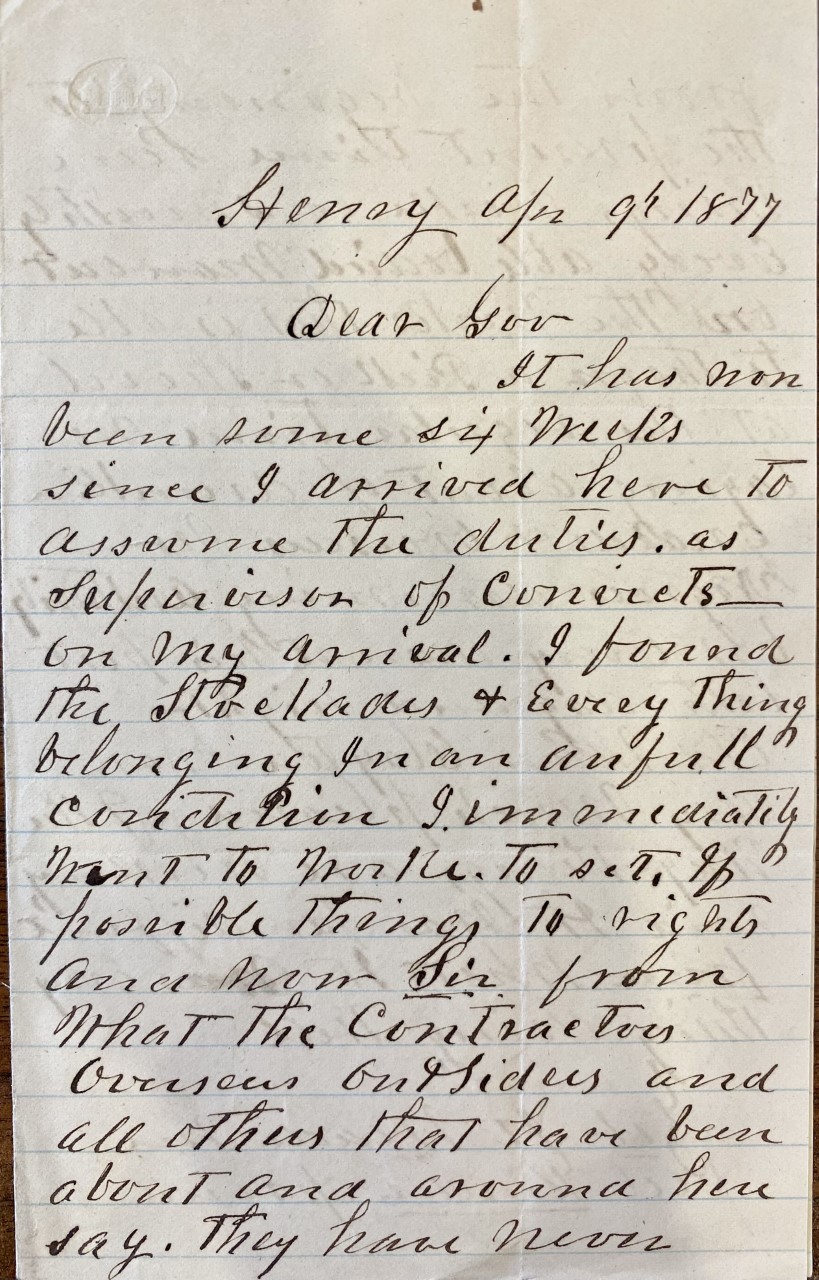 Henry Apr 9th 1877
Dear Gov
It has now
been some six Weeks
since I arrived here To
assume the duties. as
Supervisor of Convicts—
on my arrival. I found
the Stockades & Every Thing
belonging In an anfull
condition I immediatily
Went To Worke. To set. If
possible Things To rights
And now Sir from
What The Contractors
Overseers out & Siders and
all others that have been
about and around here
say. They have never